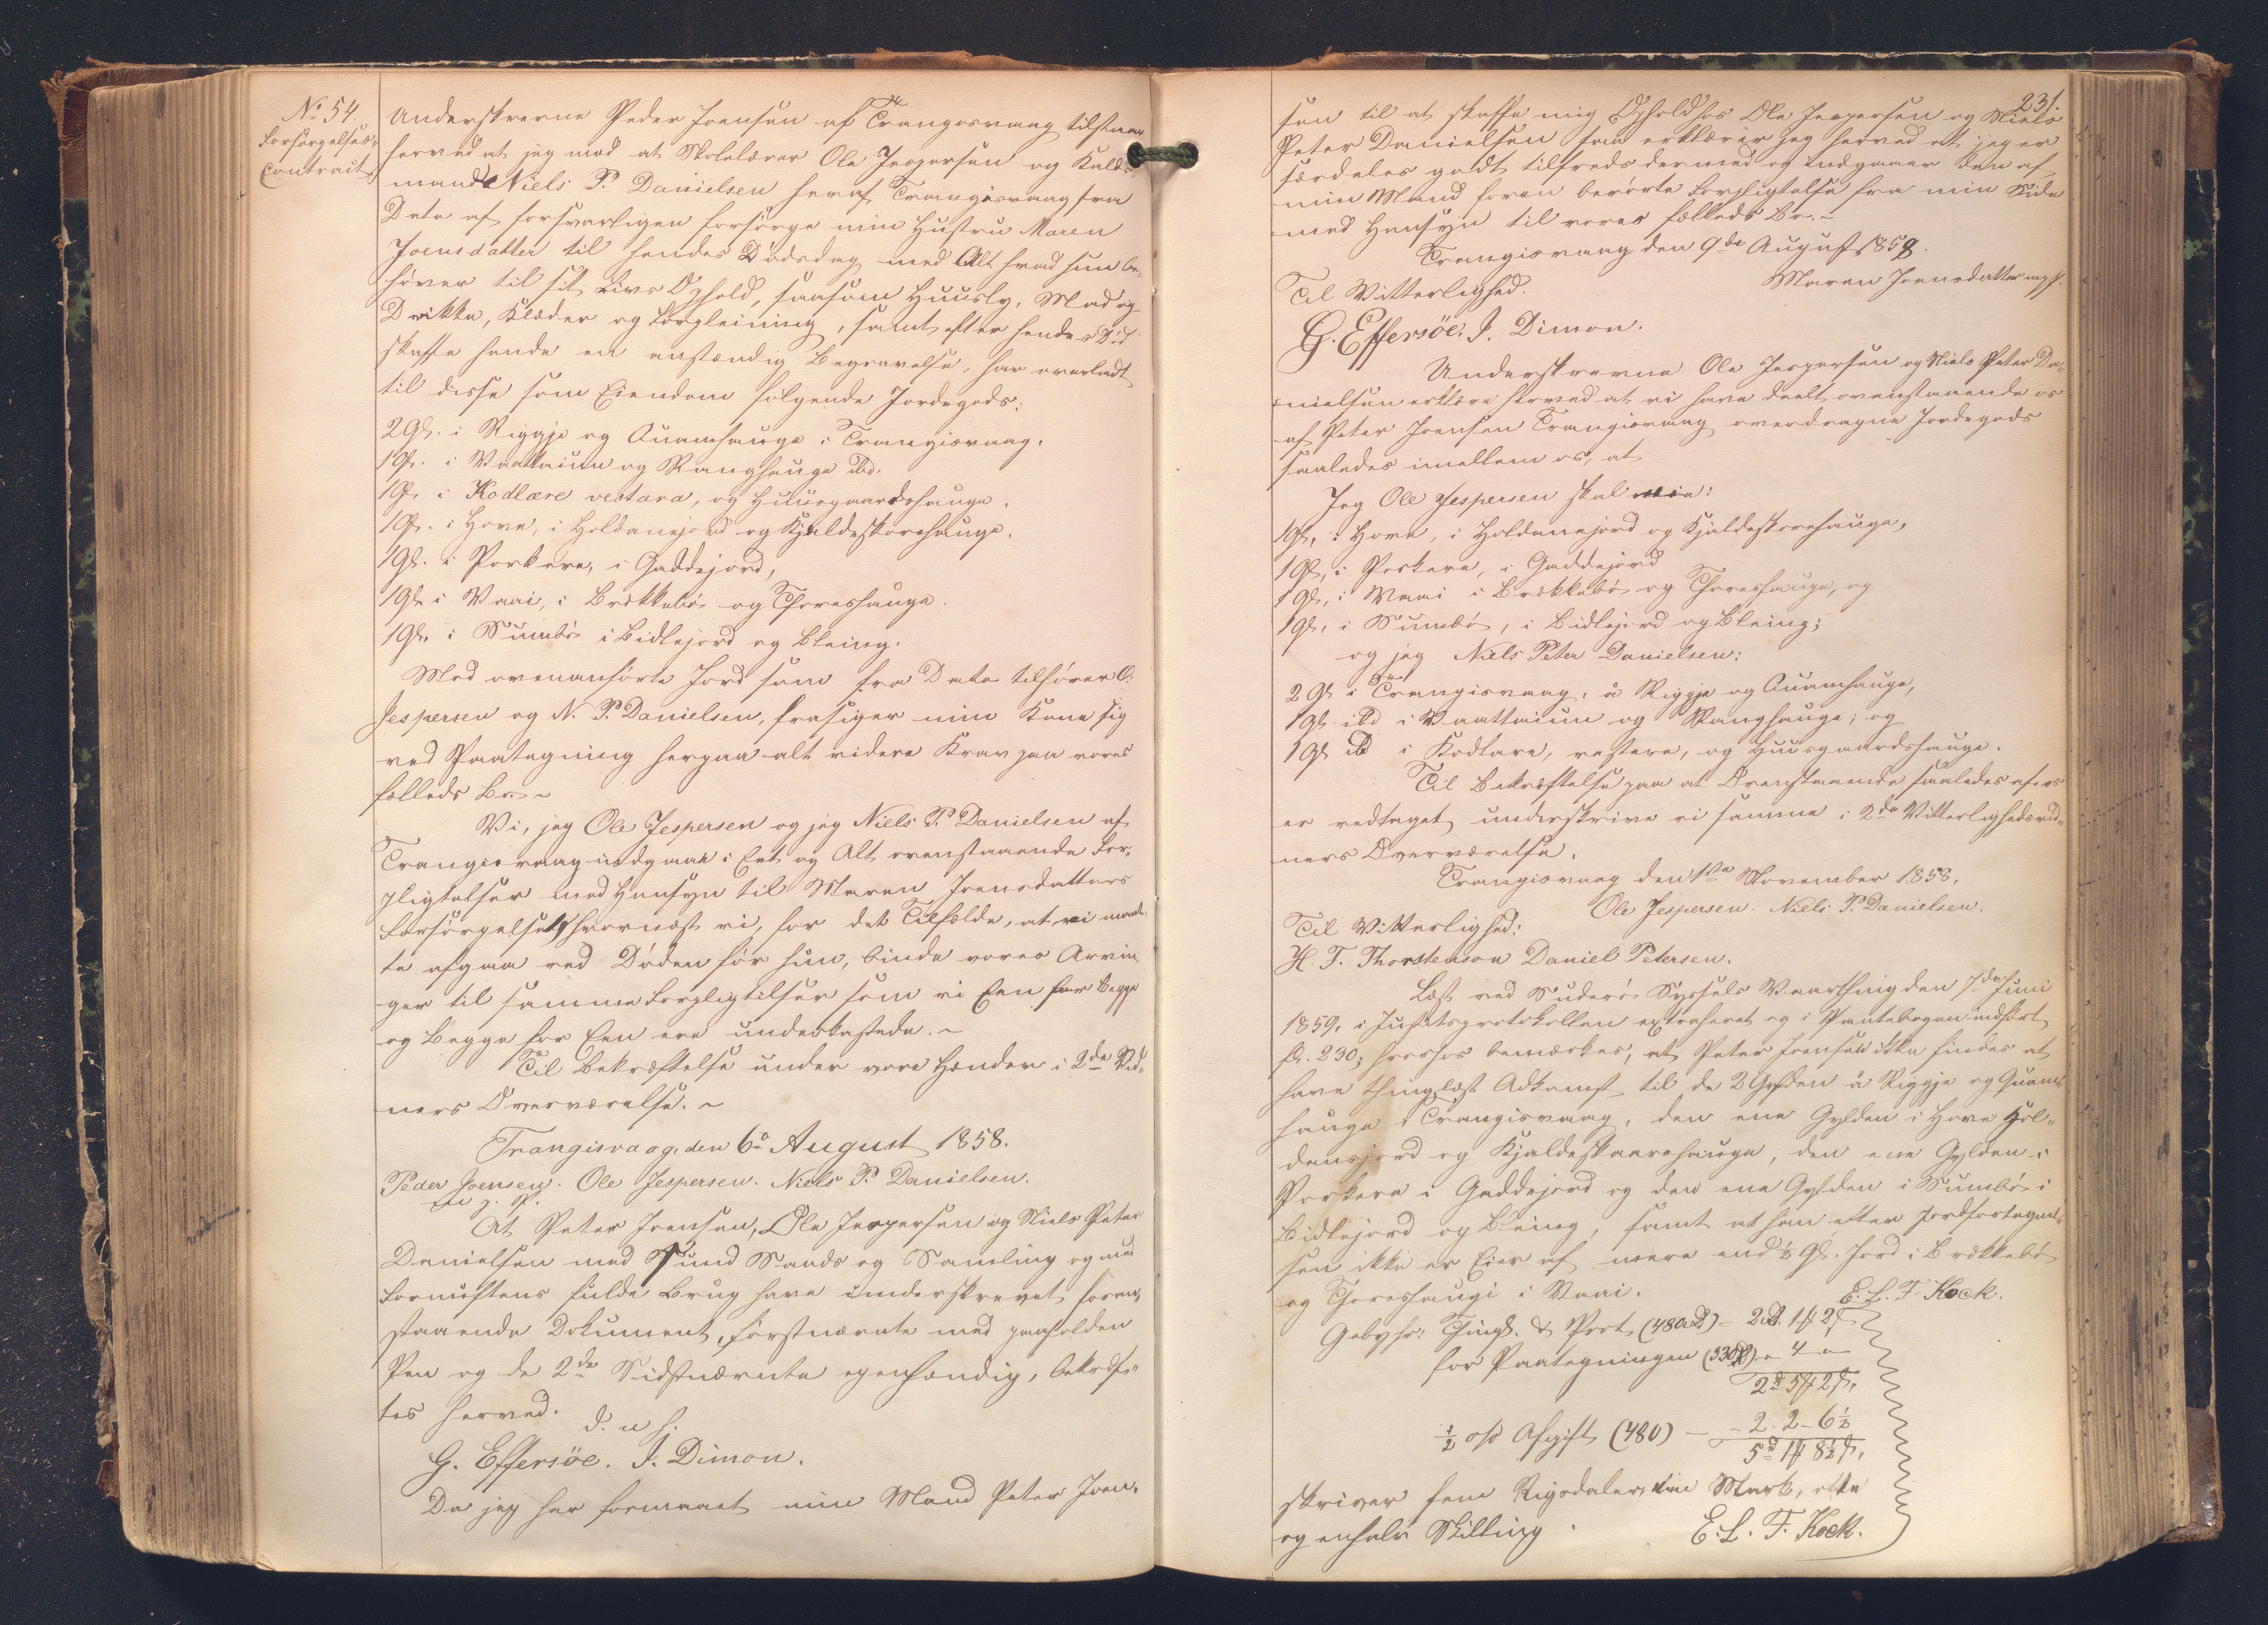 No 54.
Forsørgelses-
Contract.
Underskrevne Peder Joensen af Trangisvaag tilstaaer
herved at jeg mod at Skolelærer Ole Jespersen og
mand Niels P. Danielsen heraf Trangisvaag fra
Dato af forsvarligen forsørge min Hustru Maren
Joensdatter til hendes Dødsdag med Alt hvad hun be-
høver til sit Livs Ophold, saasom Huusly, Mad og
Drikke, Klæder og Forpleining, samt efter hendes Død
skaffe hende en anstændig Begravelse, har overladt
til disse som Eiendom følgende Jordegods:
2 Gl. i Riggje og Quamhauge i Trangisvaag.
1 Gl. i Vaattaium og Vanghauge ibd.
1 Gl. i Kodlare vestara, og Huusgaardshauge.
1 Gl. i Hove, i Holdanejord og Kjeldeskorehauge.
1 Gl. i Porkere, i Gaddejord,
1 Gl. i Vaai, i Brekkebø og Thoreshauge.
1 Gl. i Sumbø i Bidlejord og Bleing.
Med ovenanførte Jord som fra Dato tilhører O.
Jespersen og N. P. Danielsen, frasiger min Kone sig
ved Paategning herpaa alt videre Krav paa vores
fælleds Bo. ~
Vi, jeg Ole Jespersen og jeg Niels P. Danielsen af
Trangisvaag indgaae i Eet og Alt ovenstaaende For-
pligtelser med Hensyn til Maren Joensdatters
Forsørgelse, hvornæst vi, for det Tilfælde, at vi maat-
te afgaa ved Døden før hun, binde vores Arvin-
ger til samme Forpligtelser som vi Een for Begge
og Begge for Een ere underkastede. ~
Til Bekræftelse under vore Hænder i 2de Vid-
ners Overværelse. ~
Trangisvaag, den 6e August 1858.
Peder Joensen. Ole Jespersen. Niels P. Danielsen.
m. p. P.
At Peter Joensen, Ole Jespersen og Niels Peter
Danielsen med Sund Sands og Samling og med
Fornuftens fulde Brug have underskrevet foran-
staaende Dokument, førstnævnte med paaholden
Pen og de 2de Sidstnævnte egenhændig, bekræf-
tes herved.
d. u s.
G. Effersöe. J. Dimon.
Da jeg har formaaet min Mand Peter Joen-
231.
sen til at skaffe mig Ophold hos Ole Jespersen og Niels
Peter Danielsen saa erklærer jeg herved at jeg er
særdeles godt tilfreds dermed og indgaaer den af
min Mand foran berørte Forpligtelse fra min Side
med Hensyn til vores fælleds Bo. ~
Trangisvaag den 9de August 1858.
Maren Joensdatter m. p. P.
Til Vitterlighed.
G. Effersöe. J. Dimon.
Underskrevne Ole Jespersen og Niels Peter Da-
nielsen erklære herved at vi have deelt ovenstaaende os
af Peter Joensen Trangisvaag overdragne Jordegods
saaledes imellem os, at
Jeg Ole Jespersen skal eie:
1 Gl, i Hove, i Holdanejord og Kjeldeskorehauge,
1 Gl, i Porkere, i Gaddejord
1 Gl, i Vaai i Brekkebø og Thoreshauge, og
1 Gl, i Sumbø, i Bidlejord og Bleing;
og jeg Niels Peter Danielsen:
2 Gl i Trangisvaag, i Riggje og Quamhauge,
1 Gl ibd i Vaattaium og Vanghauge; og
1 Gl ibd i Kodlare, vestere, og Huusgaardshauge.
Til Bekræftelse paa at Ovenstaaende saaledes af os
er vedtaget underskrive vi samme i 2de Vitterlighedsvid-
ners Overværelse.
Trangisvaag den 1ste November 1858.
Ole Jespersen. Niels P. Danielsen.
Til Vitterlighed:
H. T. Thorstenson Daniel Petersen.
Læst ved Suderø Syssels Vaarthing den 7de Juni
1859, i Justitsprotokollen extraheret og i Pantebogen indført
fl. 230; hvorhos bemærkes, at Peter Joensen ikke findes at
have thinglæst Adkomst til de 2 Gylden i Riggje og Quam-
hauge i Trangisvaag, den ene Gylden i Hove Hol-
densjord og Kjeldeskaarehauge, den ene Gylden i
Porkere i Gaddejord og den ene Gylden i Sumbø i
Bidlejord og Bleing, samt at han efter Jordfortegnel-
sen ikke er Eier af mere end ½ Gl. Jord i Brekkebø
og Thoreshaugi i Vaai.
E. L. F. Kock.
Gebyhr: Thingl. & Prot. (48) – 2 1 2
for Paategningen (33) – 4 –
2 5 2
½ o/o Afgift (480) – 2 – 2 – 6½
5 1 8½
skriver fem Rigsdaler, een Mark, otte
og en halv Skilling.
E. L. F. Kock.